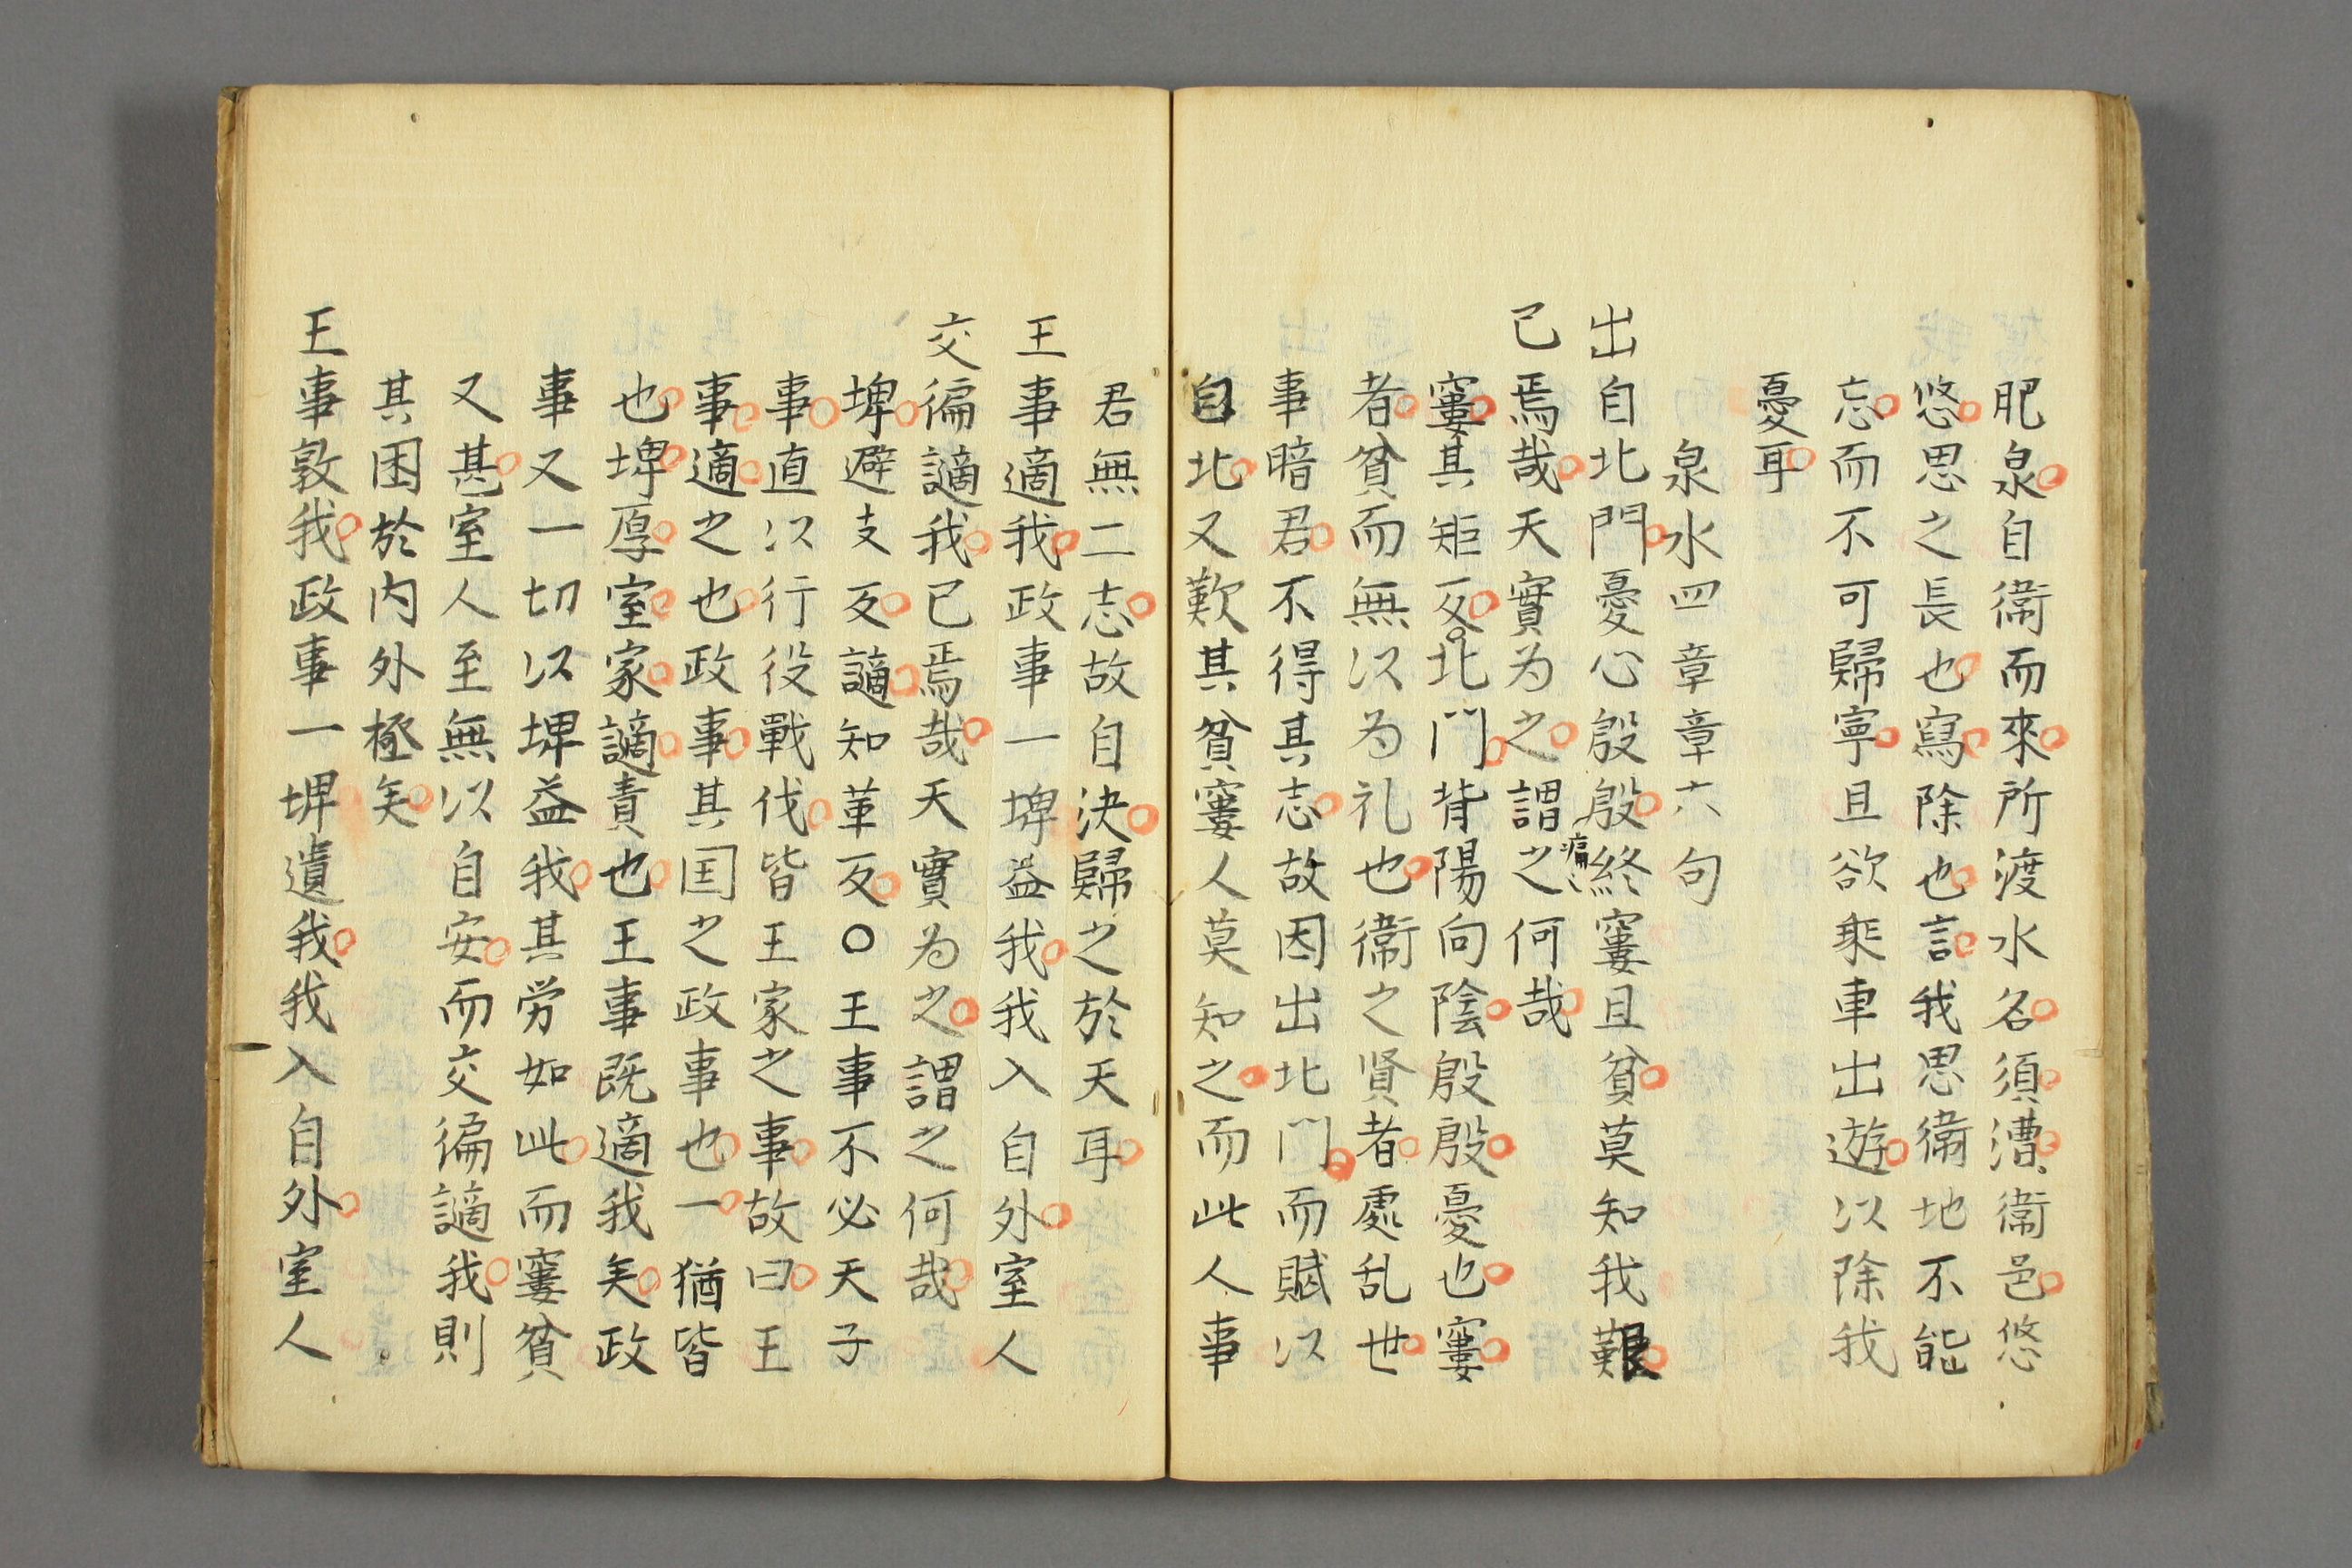 肥泉自衛而來所渡水名須漕衛邑悠
悠思之長也寫除也言我思衛地不能
忘而不可歸寧且欲乘車出遊以除我
憂耳
泉水四章章六句
出自北門憂心殷殷終窶且貧莫知我艱
已焉哉天實为之謂之何哉
窶其矩反北門背陽向陰殷殷憂也窶
者貧而無以为礼也衛之賢者處乱世
事暗君不得其志故因出北門而賦以
自北又歎其貧窶人莫知之而此人事
君無二志故自決歸之於天耳
王事適我政事一埤益我我入自外室人
交徧讁我已焉哉天實为之謂之何哉
埤避支反讁知革反〇王事不必天子
事直以行役戰伐皆王家之事故曰王
事適之也政事其国之政事也一猶皆
也埤厚室家讁責也王事既適我矣政
事又一切以埤益我其労如此而窶貧
又甚室人至無以自安而交徧讁我則
其困於内外極矣
王事敦我政事一埤遺我我入自外室人